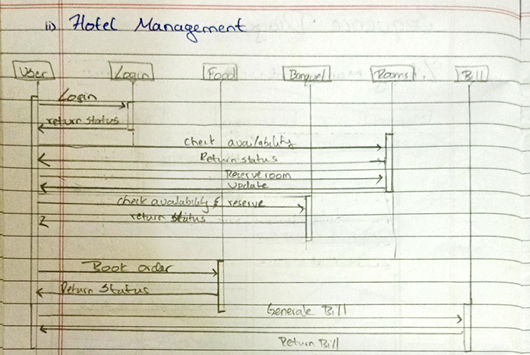 ii) Hotel Management
User Login Food Banquet Rooms Bill
Login
return status
check availability
Return status
Reserve room
update
check availability & reserve
return status
Book order
Return Status
Generate Bill
Return Bill